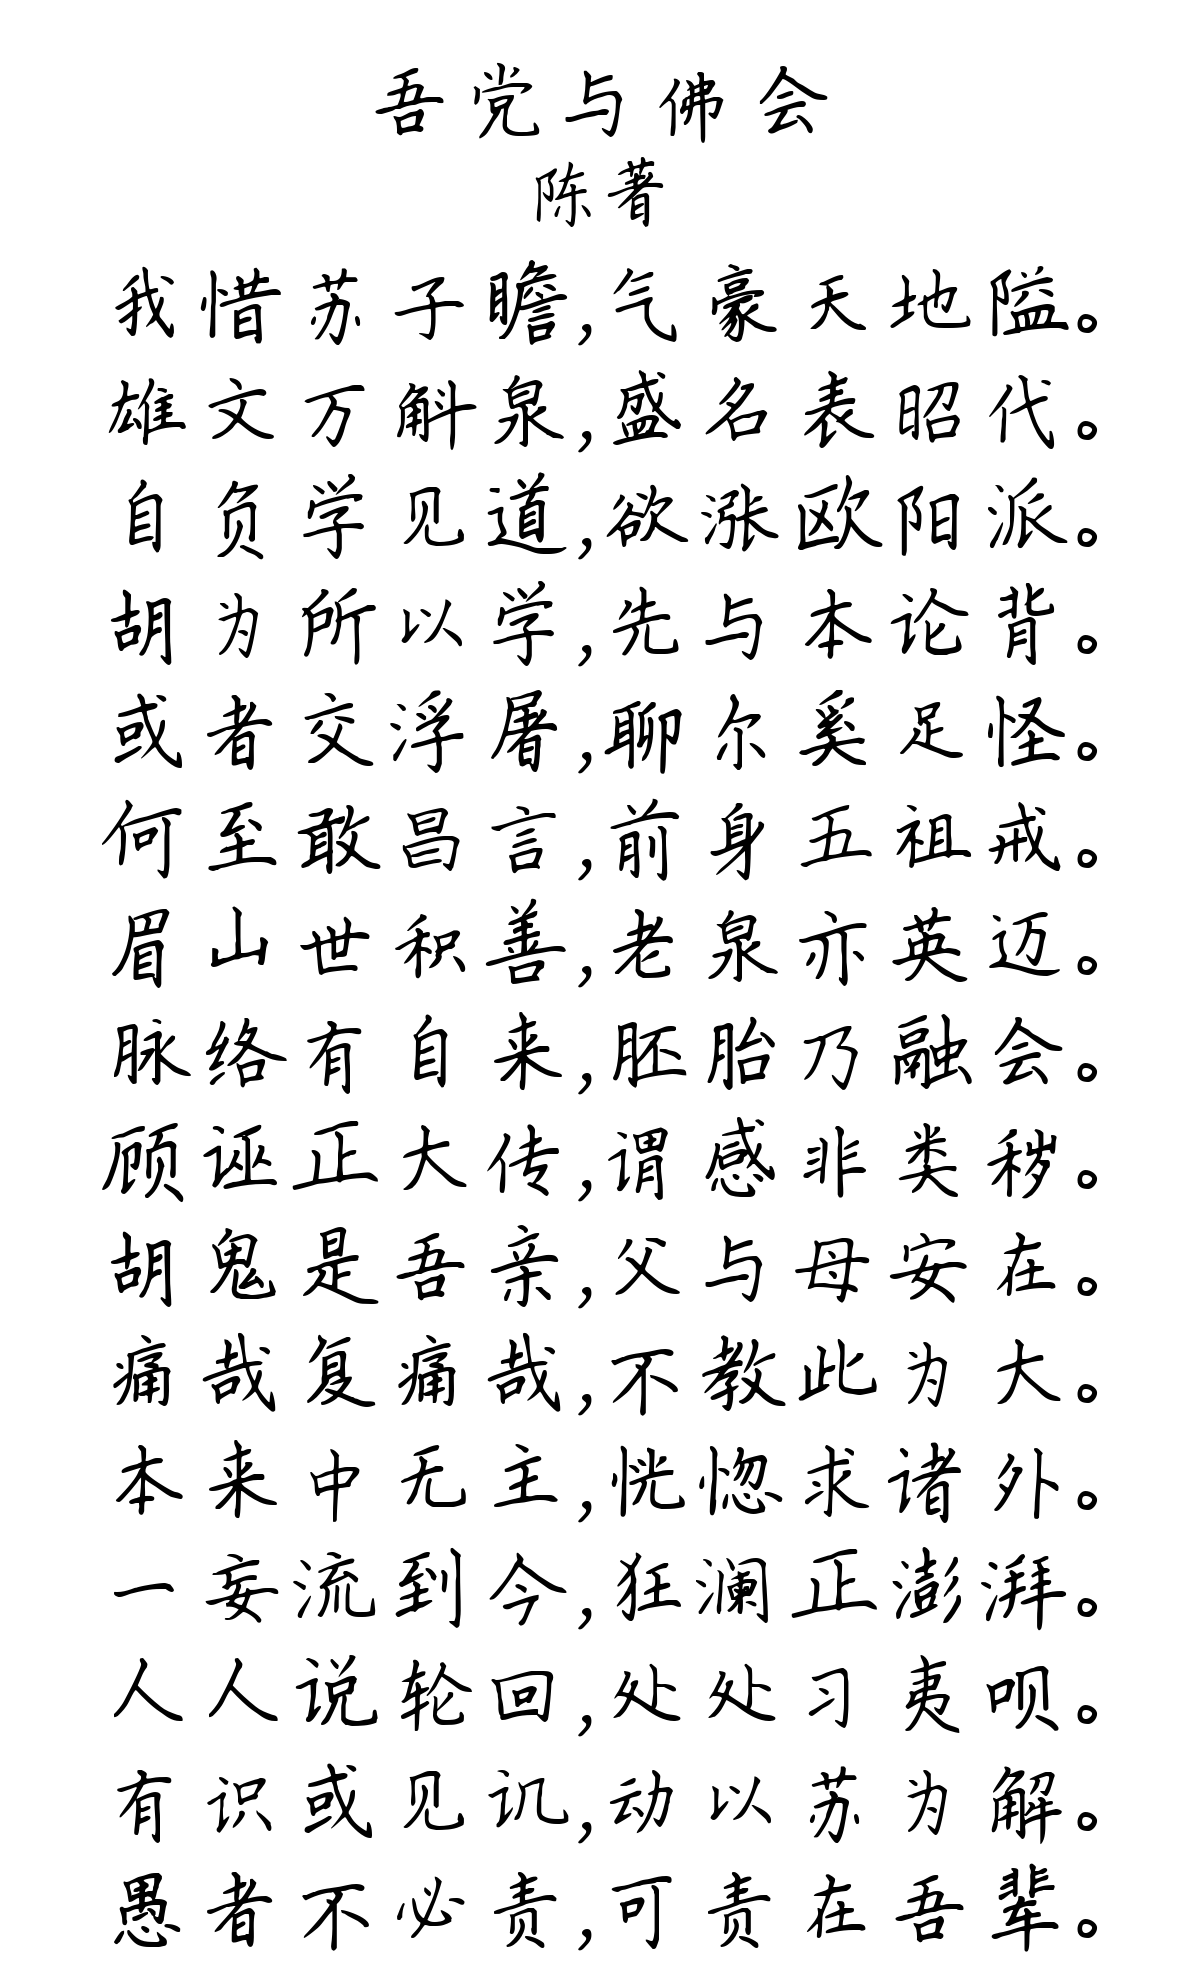 吾党与佛会
陈著
我惜苏子瞻,气豪天地隘。
雄文万斛泉,盛名表昭代。
自负学见道,欲涨欧阳派。
胡为所以学,先与本论背。
或者交浮屠,聊尔奚足怪。
何至敢昌言,前身五祖戒。
眉山世积善,老泉亦英迈。
脉络有自来,胚胎乃融会。
顾诬正大传,谓感非类秽。
胡鬼是吾亲,父与母安在。
痛哉复痛哉,不教此为大。
本来中无主,恍惚求诸外。
一妄流到今,狂澜正澎湃。
人人说轮回,处处习夷呗。
有识或见讥,动以苏为解。
愚者不必责,可责在吾辈。